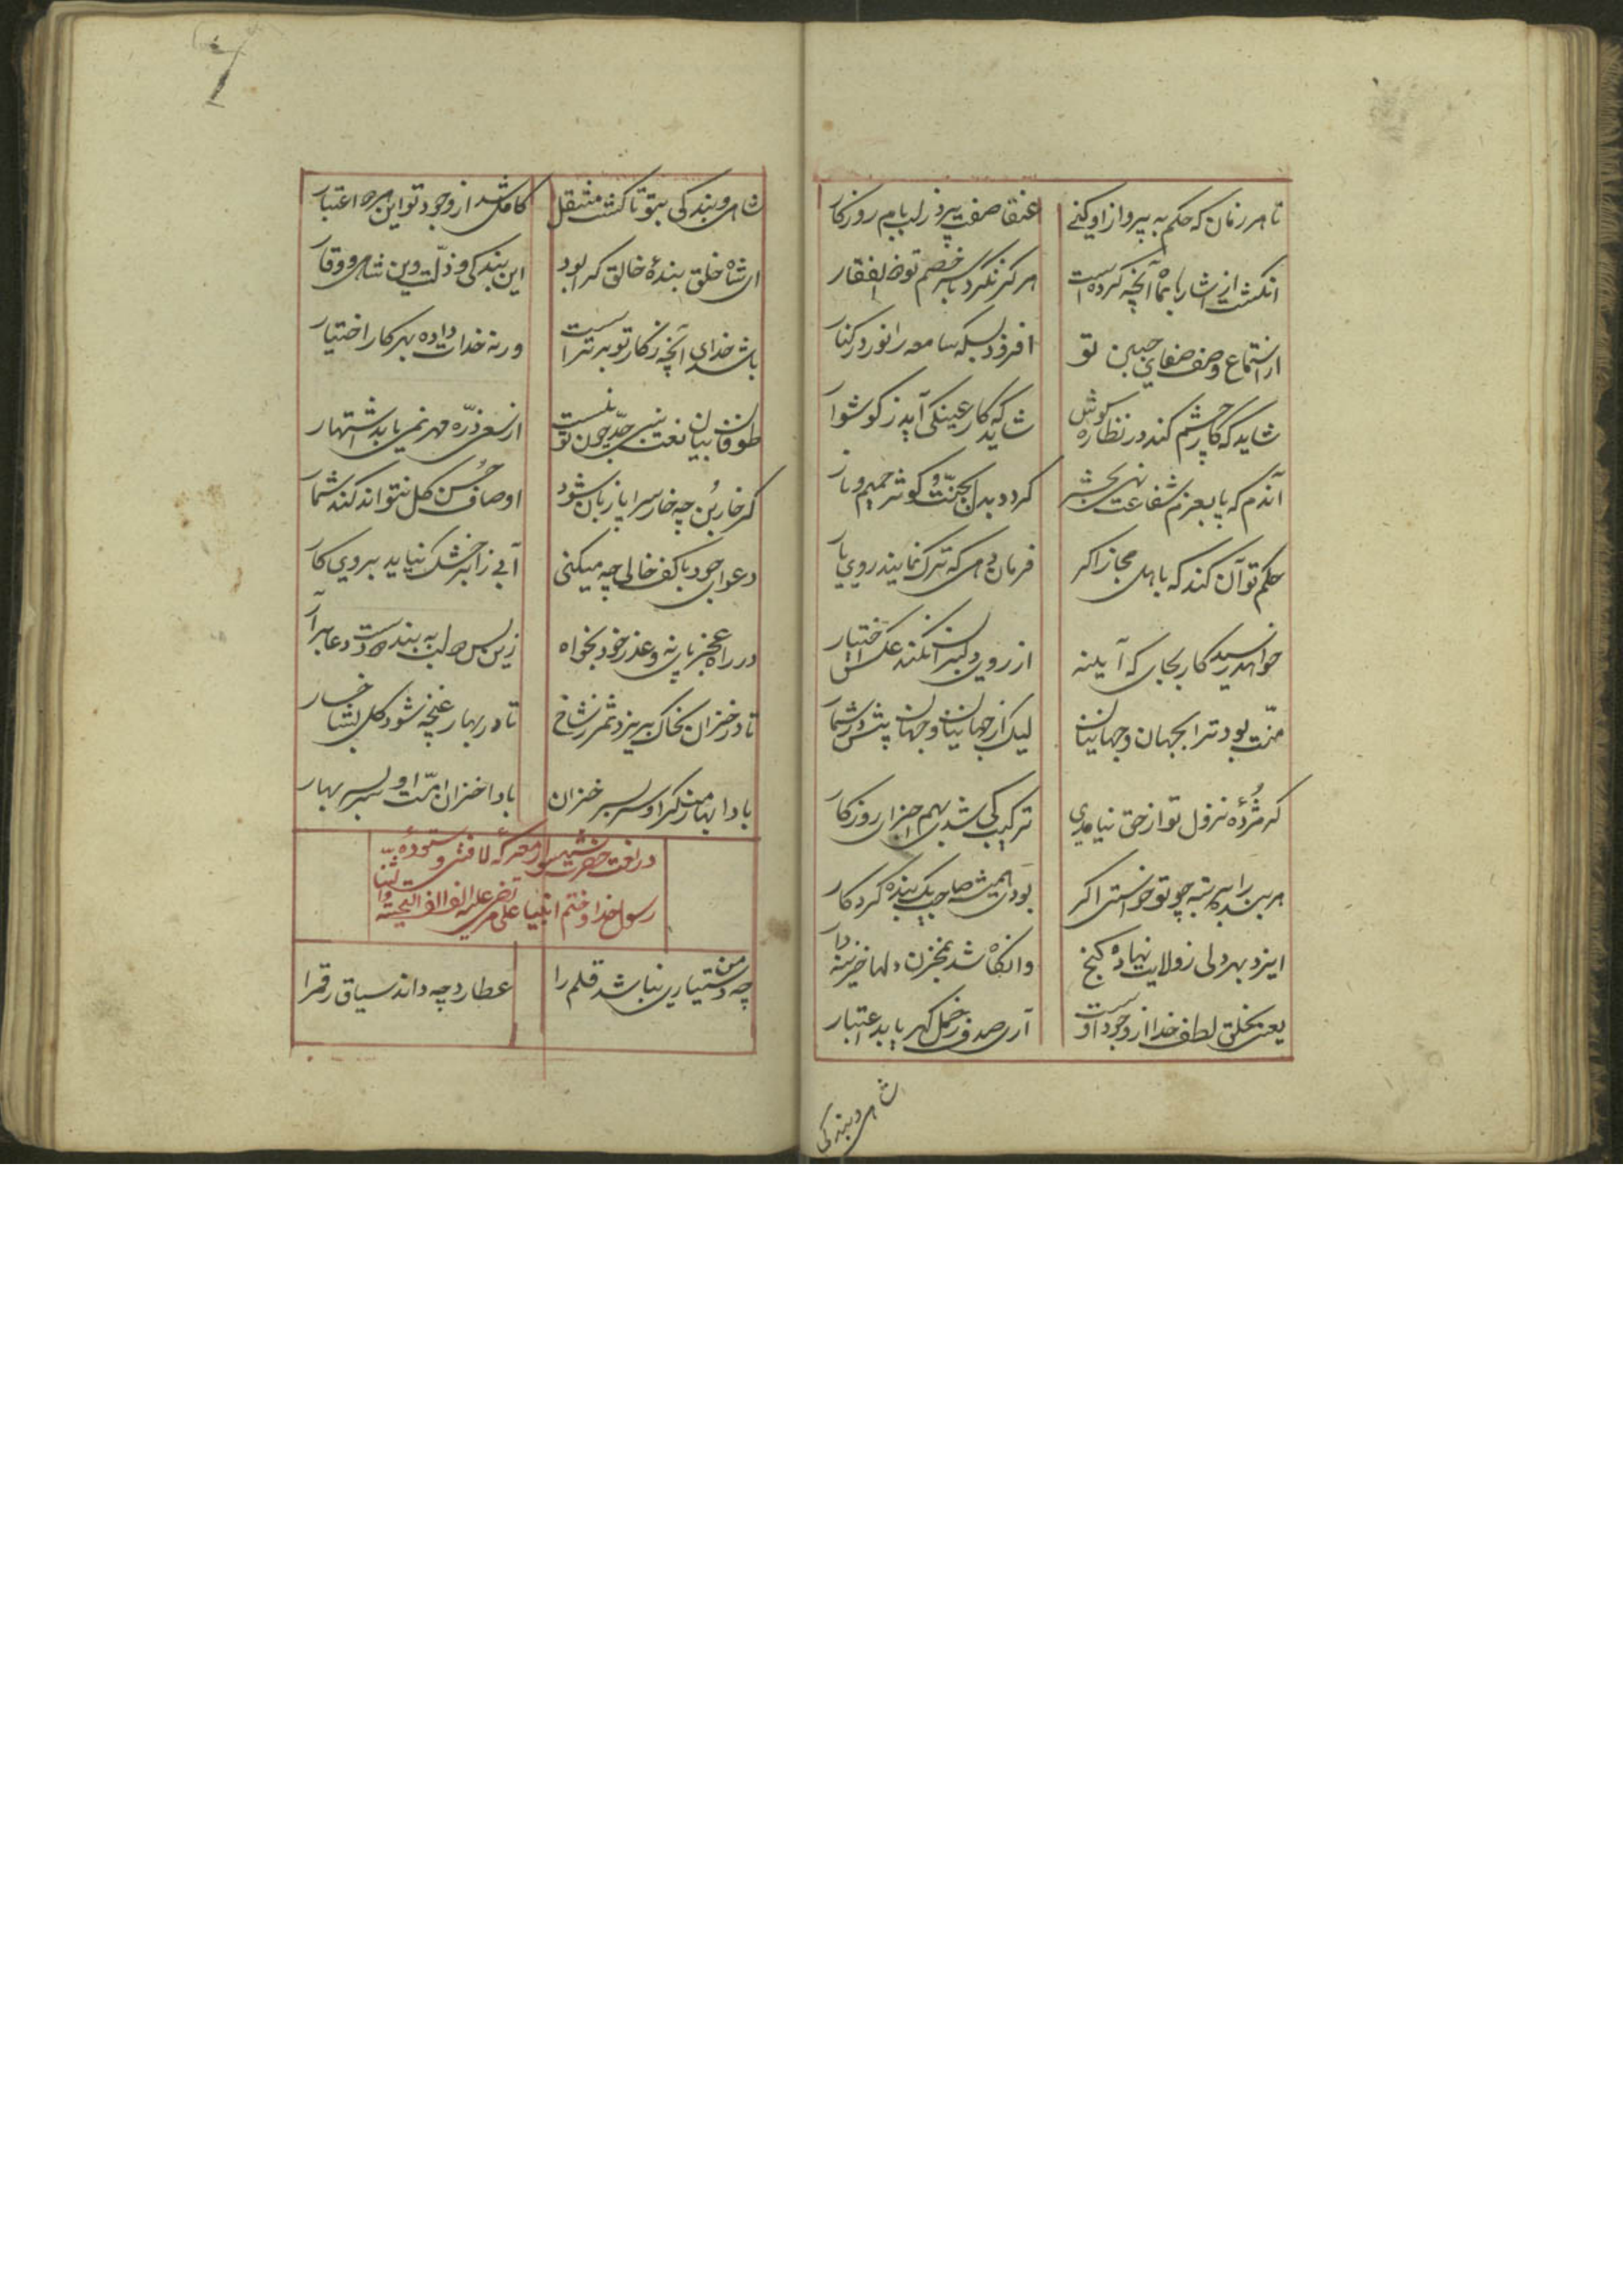 تا هر زمان که حکم به پرواز او کنی
عنقا صفت پرد ز لب بام روزکار
انکشت از اشاره بماه آنچه کرده است
هرکز نکرد با سر خصم تو ذوالفقار
از استماع وصف صفای جبین تو
افزود بسکه سامعه را نور در کنار
شاید که کار چشم کند در نظاره کوش
شاید که کار عینکی آید ز کوشوار
آندم که پا بعزم شفاعت نهی بحشر
کردد بدل بجنّت و کوثر حمیم و نار
حکم تو آن کند که باهل مجاز اکر
فرمان دهی که ترک نمایند روی یار
خواهد رسید کار بجای که آینه
از روی دلبران نکند عکس اختیار
منّت بود ترا بجهان و جهانیان
لیک از جهانیان و جهان پیش در شمار
کر مژدهٔ نزول تو از حق نیامدی
ترکیب کی شدی بهم اجزای روزکار
هر بنده را بمرتبه چو تو خواستی اکر
بودی همیشه صاحب یک بنده کردکار
ایزد بهر دلی ز ولایت نهاده کنج
وانکاه شد بمخزن دلها خزینه دار
یعنی بخلق لطف خدا از وجود اوست
آری صدف ز حمل کهر یابد اعتبار
شاهی و بندکی
شاهی و بندکی بتو تا کشت منتقل
کامل شد از وجود تو این هر دو اعتبار
ای شاه خلق بندهٔ خالق کرا بود
این بندکی و ذلّت وین شاهی و وقار
باشد خدای آنچه ز کار تو برتر است
ورنه خدات داده بهر کار اختیار
طوفان بیان نعت نبی حدّ چون تو نیست
از سعی ذرّه مهر نمی یابد اشتهار
کر خار بُن چه خار سراپا زبان شود
اوصاف حُسن کل نتواند کند شمار
دعوای جود با کف خالی چه میکنی
آبی ز ابر خشک نیاید بروی کار
در راه عجز پای نه و عذر خود بخواه
زین پس لب به بند و دست دعا برآر
تا در خزان بخاک بریزد ثمر ز شاخ
تا در بهار غنچه شود کل بشاخسار
بادا بهار منکر او سر بسر خزان
بادا خزان امّت او سر بسر بهار
در نعت حضرت شهسوار معرکهٔ لافتی و ستودهٔ
رسول خدا و ختم انبیا علی مرتضی علیه الف الاف التحیة و الثنا
چه دستیاری من باشد قلم را
عطارد چه داند سیاق رقم را